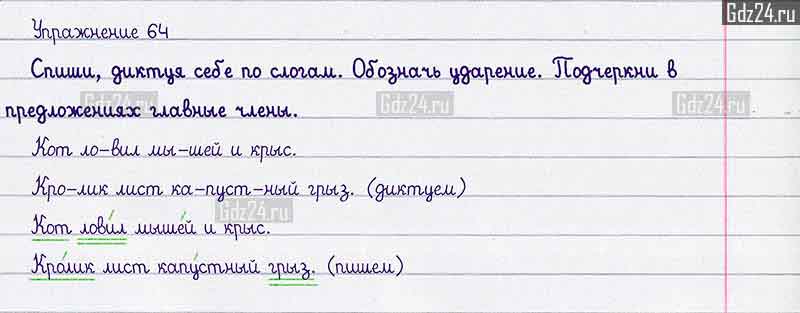 Gdz24.ru
Упражнение 64
Спиши, диктуя себе по слогам. Обозначь ударение. Подчеркни в
предложениях главные члены.
Gdz24.ru Gdz24.ru Gdz24.ru
Кот ло-вил мы-шей и крыс.
Кро-лик лист ка-пуст-ный грыз. (диктуем)
Gdz24.ru
Кот лови́л мыше́й и крыс.
Кро́лик лист капу́стный грыз. (пишем)